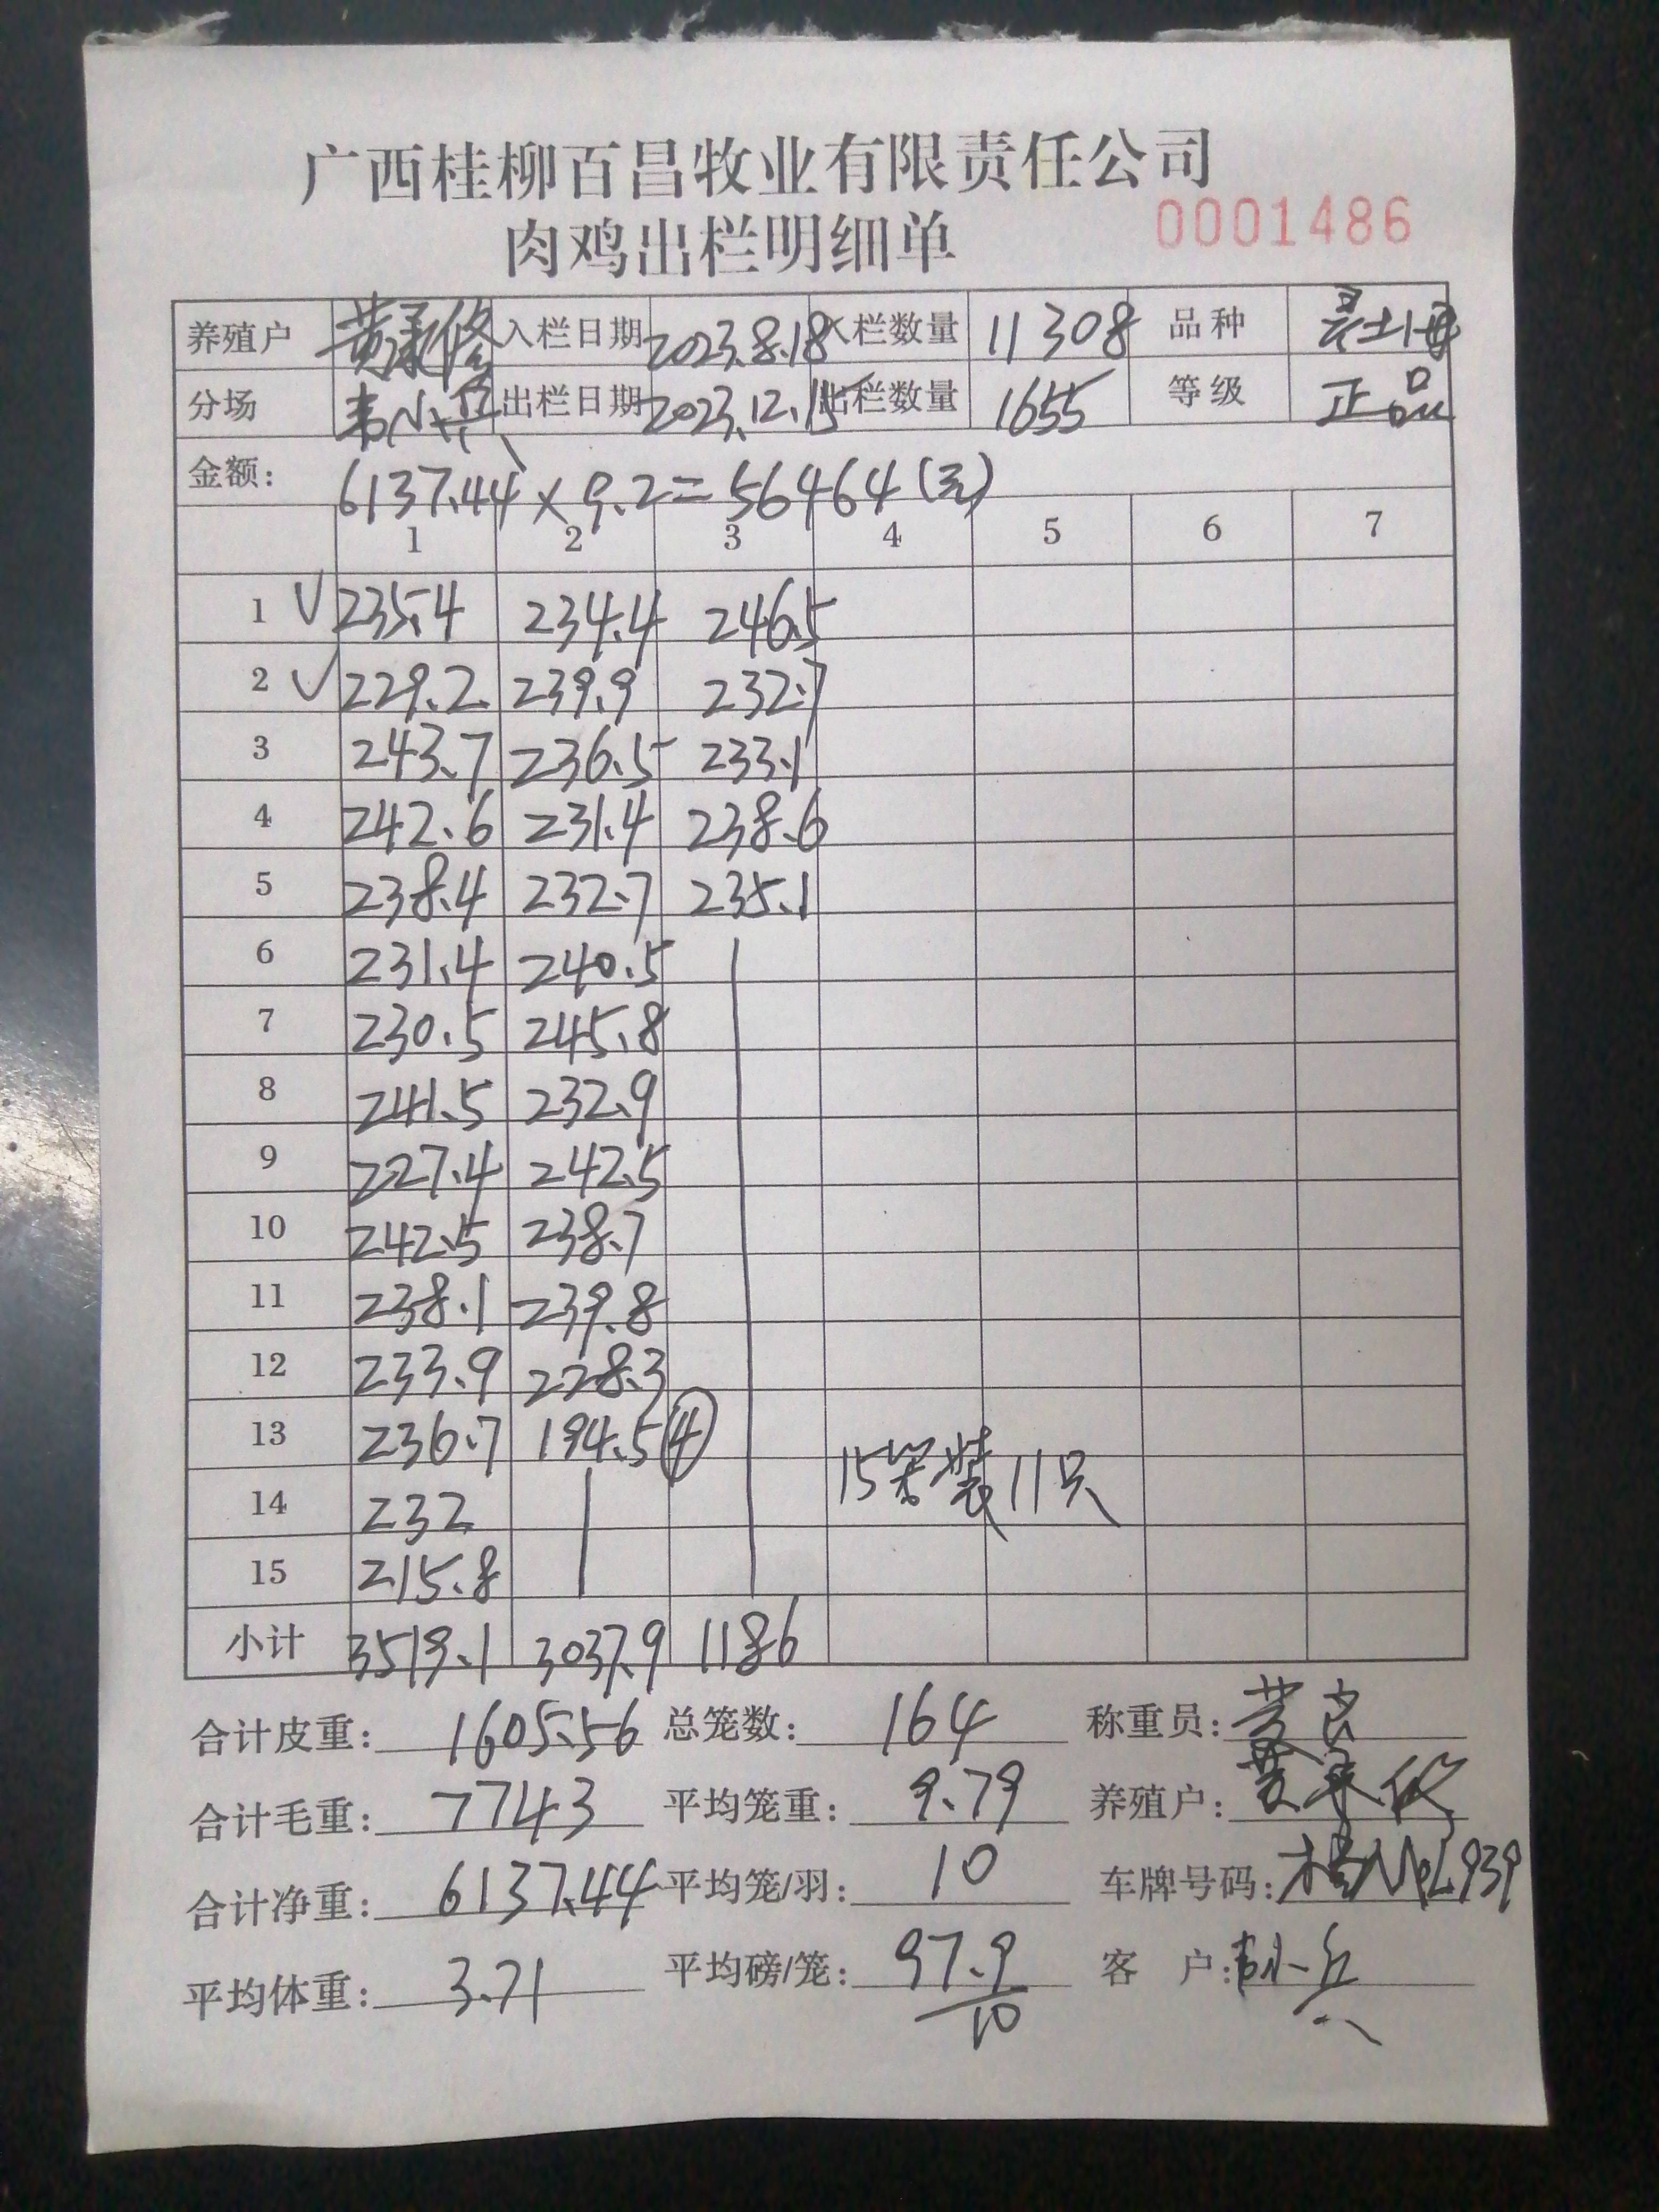 广西桂柳百昌牧业有限责任公司
肉鸡出栏明细单 0001486
养殖户 入栏日期 2023.8.18 入栏数量 11308 品种
分场 韦小兵 出栏日期 2023.12.15 出栏数量 1655 等级 正品
金额: 6137.44×9.2=56464(元)
1 2 3 4 5 6 7
1 √ 235.4 234.4 246.5
2 √ 229.2 239.9 232.7
3 243.7 236.5 233.1
4 242.6 231.4 238.6
5 238.4 232.7 235.1
6 231.4 240.5
7 230.5 245.8
8 241.5 232.9
9 227.4 242.5
10 242.5 238.7
11 238.1 239.8
12 233.9 228.3
13 236.7 194.5 ④
14 232 15笼装11只
15 215.8
小计 3519.1 3037.9 1186
合计皮重: 1605.56 总笼数: 164 称重员:
合计毛重: 7743 平均笼重: 9.79 养殖户:
合计净重: 6137.44 平均笼/羽: 10 车牌号码:
平均体重: 3.71 平均磅/笼: 97.9 客户: 韦小兵
10